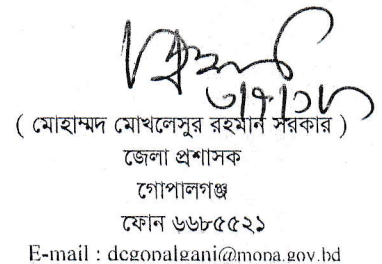 ৩/৭/১৮
( মোহাম্মদ মোখলেসুর রহমান সরকার )
জেলা প্রশাসক
গোপালগঞ্জ
ফোন ৬৬৮৫৫২১
E-mail : dcgopalganj@mopa.gov.bd